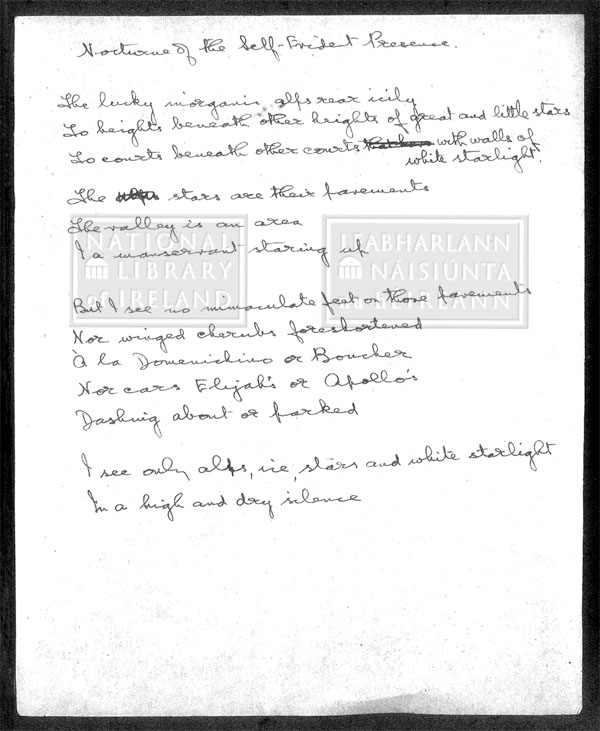 Nocturne of the Self-Evident Presence.
The lucky inorganic alps rear icily
To heights beneath other heights of great and little stars
To courts beneath other courts with walls of
white starlight.
The stars are their pavements
The valley is an area
I a manservant staring up
But I see no immaculate feet on those pavements
Nor winged cherubs foreshortened
À la Domenichino or Boucher
Nor cars Elijah's or Apollo's
Dashing about or parked
I see only alps, ice, stars and white starlight
In a high and dry silence
NATIONAL
LIBRARY
of IRELAND
LEABHARLANN
NÁISIÚNTA
na hÉIREANN